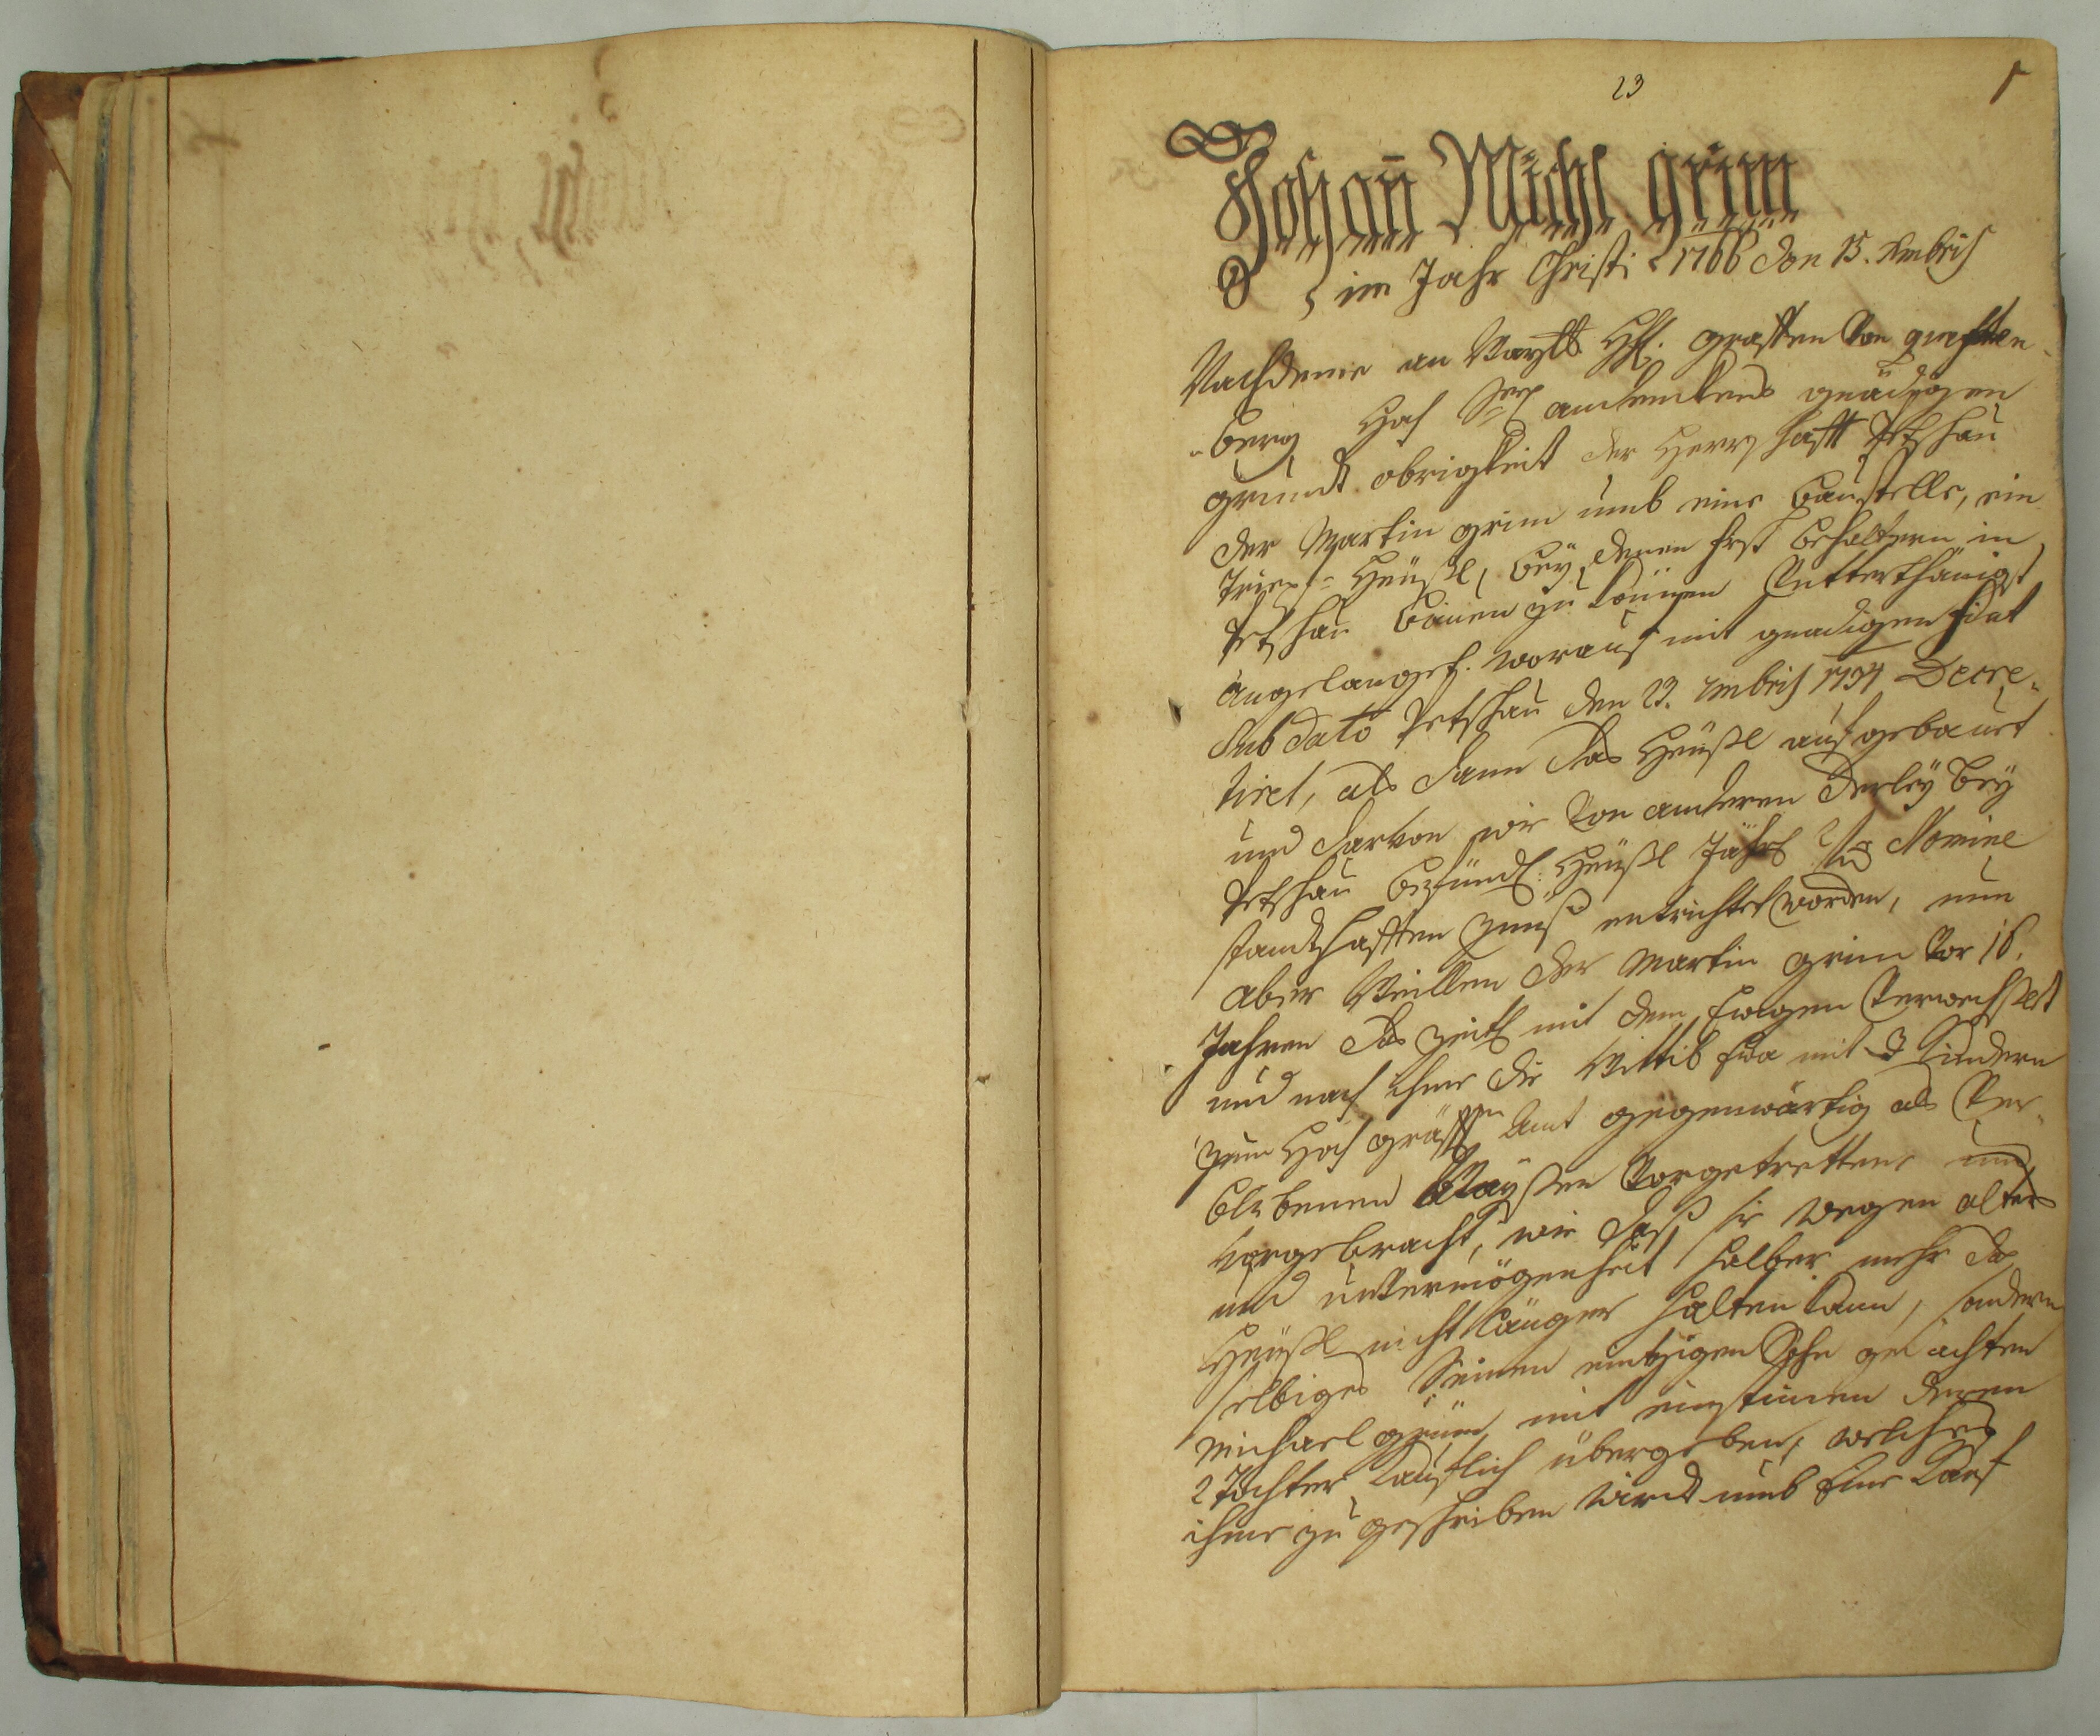 23
Johan̄ Michl grim
im Jahr Christi 1766 den 15. xmbris
Nachdeme an Weyl. Hl. graffen Von questen-
berg Hoch Seel. andenkens gnädigen
grundt obrigkeit der Herrschafft Petschau
der Martin grim umb eine Baustelle, ein
Heüßl, beÿ denen behaltern in
Petschau bauen zu können Untterthänigst
angelanget. worauf mit gnädigen fiat
Sub dato Petschau den 23. xmbris 1734 Decre-
tiret, als dann das Heüßl aufgebauet
und darvon wie Von anderen derleÿ beÿ
Petschau befindl: Heüßl Jährl Nomine
standhafften Zinnß entrichtet worden, nun
aber Weillen der Martin grim Vor 16.
Jahren das zeitl mit dem Ewigen Verwechßlet
und nach ihme die Wittib Eva mit 3 Kindern
zum Hoch gräffl Amt gegenwärtig als Ver-
blebenen Waÿßen Vorgetrettene und
Vorgebracht, wie daß sie wegen alters
und unVermögenheit halber mehr das
Heüßl nicht länger halten kann, sondern
selbiges Seinen eintzigen Sohn gedachten
Michael grim mit einstimen deren
2 Töchter käuflich übergeben, welches
ihme zu geschrieben wirdt umb Eine Kauf